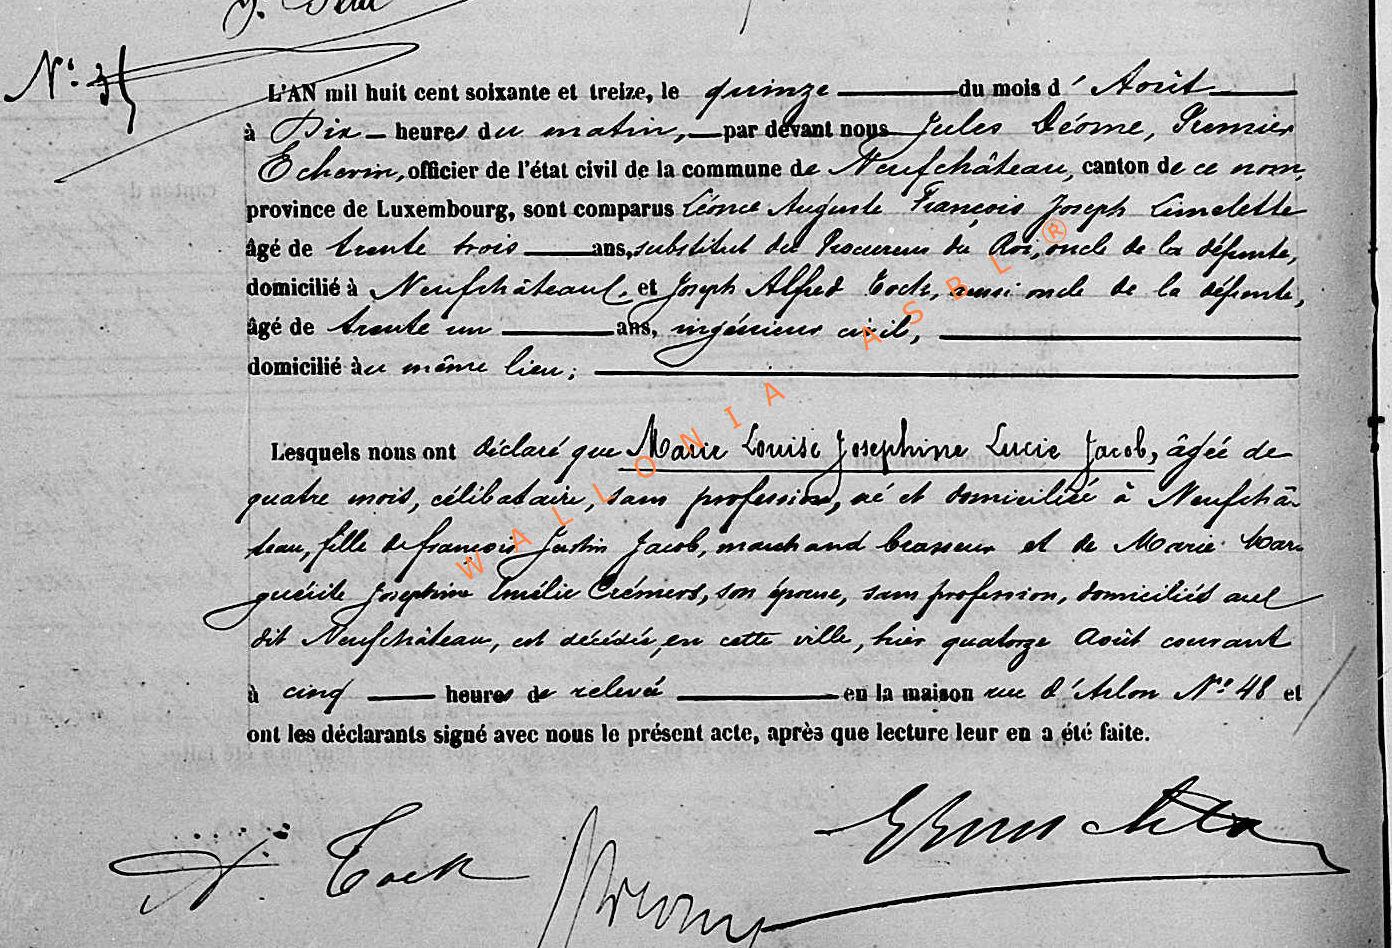 L'AN mil huit cent soixante et treize, le quinze du mois d' Août
à Dix heures du matin, par devant nous Jules Déome, Premier
Echevin, officier de l'état civil de la commune de Neufchâteau, canton de ce nom,
province de Luxembourg, sont comparus Léonce Auguste François Joseph Limelette
âgé de trente trois ans, substitut du Procureur du Roi, oncle de la défunte,
domicilié à Neufchâteau, et Joseph Alfred Tock, aussi oncle de la défunte,
âgé de trente un ans, ingénieur civil,
domicilié au même lieu;
Lesquels nous ont déclaré que Marie Louise Josephine Lucie Jacob, âgée de
quatre mois, célibataire, sans profession, né et domiciliée à Neufchâ-
teau, fille de françois Justin Jacob, marchand brasseur et de Marie Mar-
guérite Josephine Emélie Crémers, son épouse, sans profession, domiciliés au
dit Neufchâteau, est décédée, en cette ville, hier quatorze Août courant
à cinq heures de relevée en la maison rue d'Arlon N° 48 et
ont les déclarants signé avec nous le présent acte, après que lecture leur en a été faite.
A. Tock
WALLONIA ASBL ®